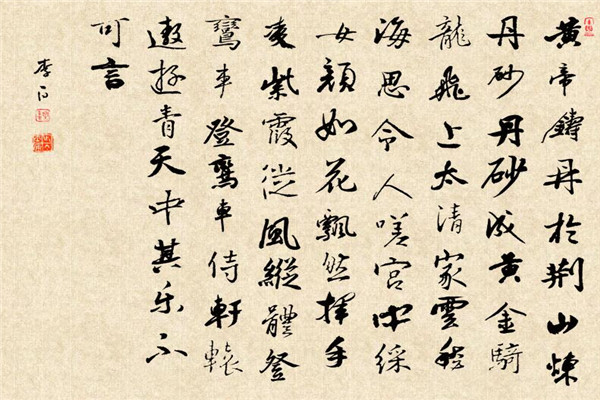 黄帝鑄鼎於荆山煉
丹砂丹砂成黄金騎
龍飛上太清家雲愁
海思令人嗟宮中綵
女顔如花飄然揮手
凌紫霞從風縱體登
鸞車登鸞車侍軒轅
遨遊青天中其樂不
可言
李